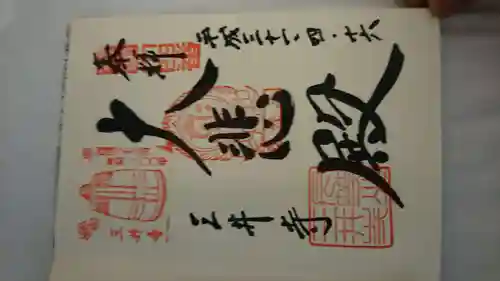 奉拝
平成三十一・四・十六
大悲殿
三井寺
三井寺